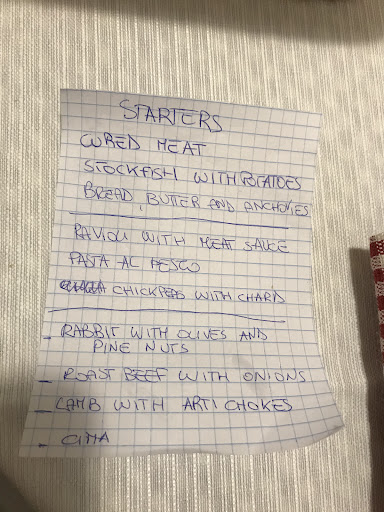 STARTERS
CURED MEAT
STOCKFISH WITH POTATOES
BREAD, BUTTER AND ANCHOVIES
RAVIOLI WITH MEAT SAUCE
PASTA AL PESCO
CHICKPEAS WITH CHARD
- RABBIT WITH OLIVES AND
PINE NUTS
- ROAST BEEF WITH ONIONS
- LAMB WITH ARTICHOKES
- CIMA